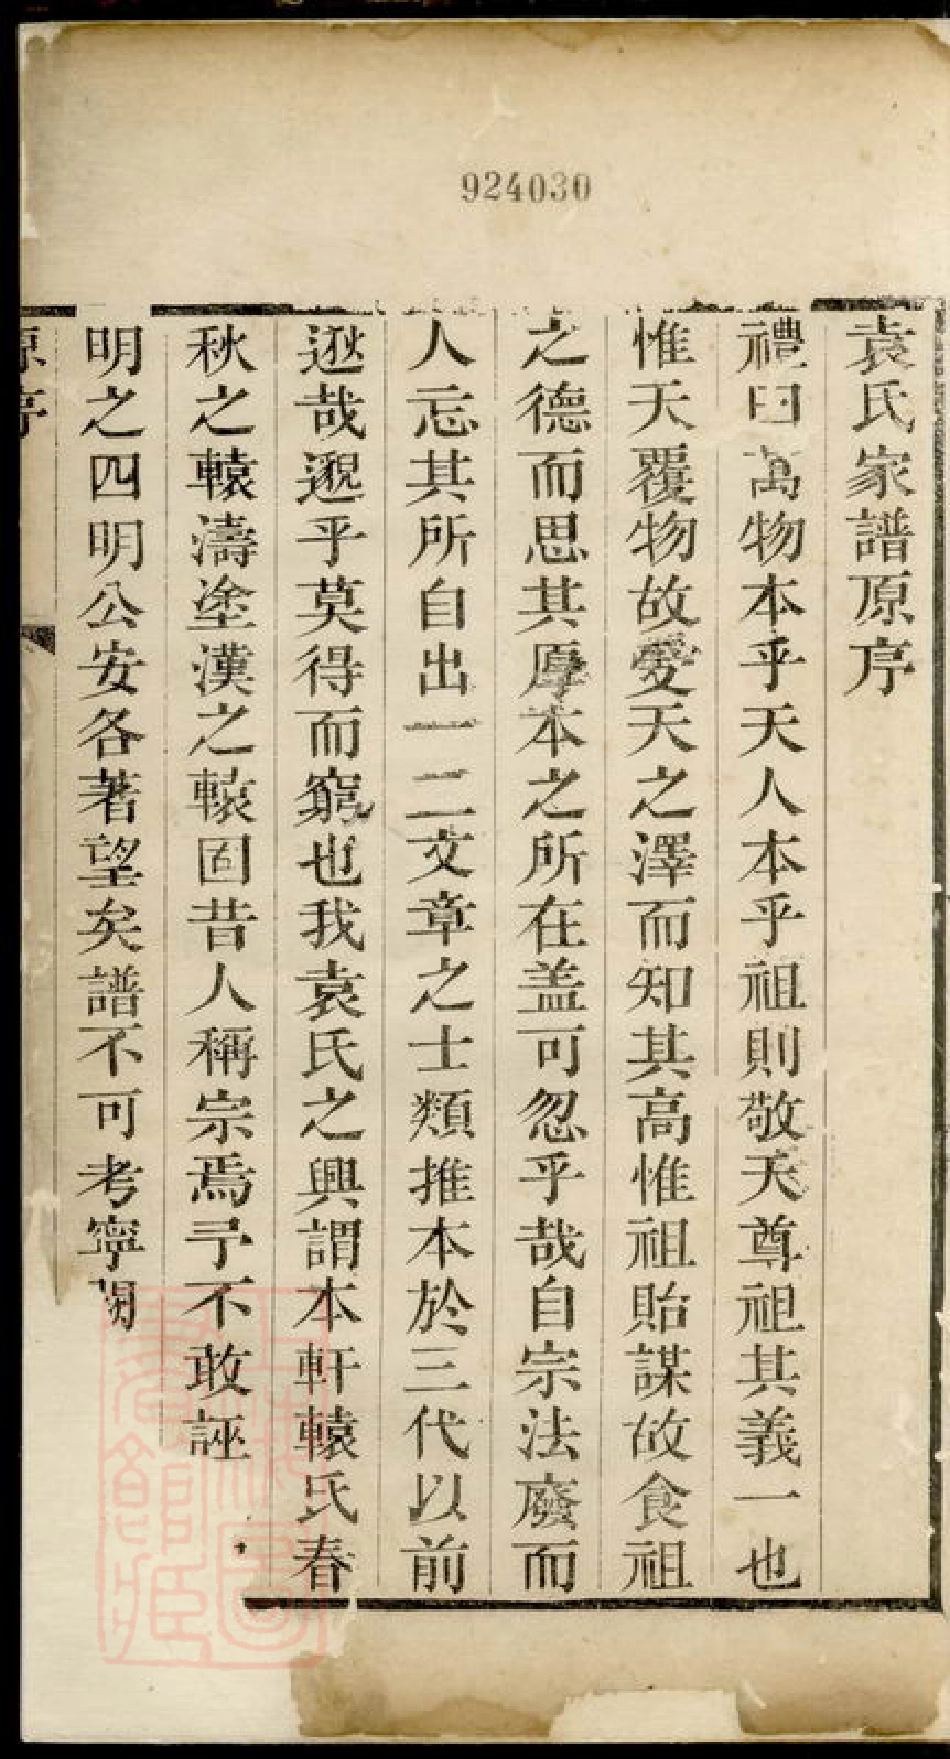 924030
袁氏家譜原序
禮曰萬物本乎天人本乎祖則敬天尊祖其義一也
惟天覆物故愛天之澤而知其高惟祖貽謀故食祖
之德而思其厚本之所在盖可忽乎哉自宗法廢而
人忘其所自出一二文章之士類推本於三代以前
逖哉邈乎莫得而窮也我袁氏之興謂本軒轅氏春
秋之轅濤塗漢之轅固昔人稱宗焉予不敢誣
明之四明公安各著望矣譜不可考寧闕
原序
上海圖書館藏